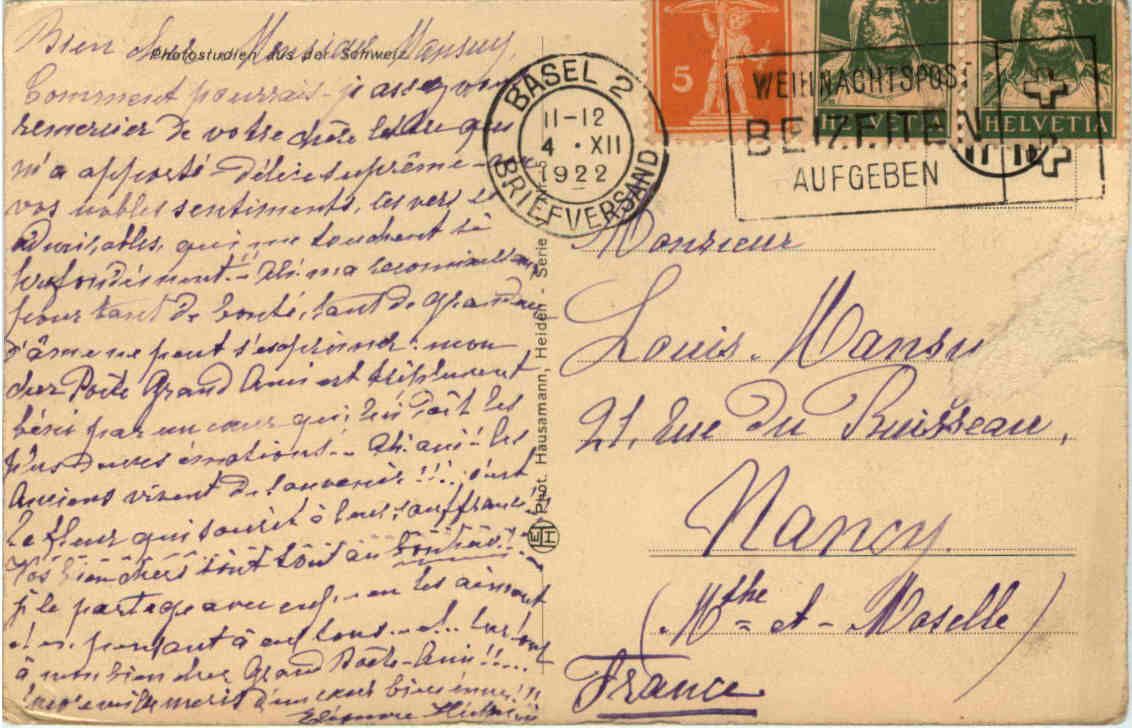 Photostudien aus der Schweiz
Bien cher Monsieur Mansuy,
Comment pourrais-je assez vous
remercier de votre chère lettre qui
m'a apporté délice suprême
vos nobles sentiments, les vers si
admirables, qui me touchent si
profondément.. Ah! ma reconnaissance
pour tant de bonté, tant de grandeur
d'âme ne peut s'exprimer: mon
cher Poète Grand Ami est triplement
béni par un cœur qui lui doit les
plus douces émotions... Ah! oui! les
Anciens vivent de souvenir!!!; c'est
la fleur qui sourit à leurs souffrances!!
Vos bien chers sont tout au bonheur!!
je le partage avec eux, en les aimant
et en pensant à eux tous... et
à mon bien cher Grand Poète-Ami!!...
mercis d'un cœur bien ému!!
Eléonore
Phot. Hausamann, Heiden - Serie
EHH
BASEL 2
11-12
4 · XII
1922
BRIEFVERSAND
5
10
HELVETIA
10
HELVETIA
WEIHNACHTSPOST
BEIZEITEN
AUFGEBEN
Monsieur
Louis Mansu
21, Rue du Ruisseau,
Nancy.
(Mthe et Moselle)
France